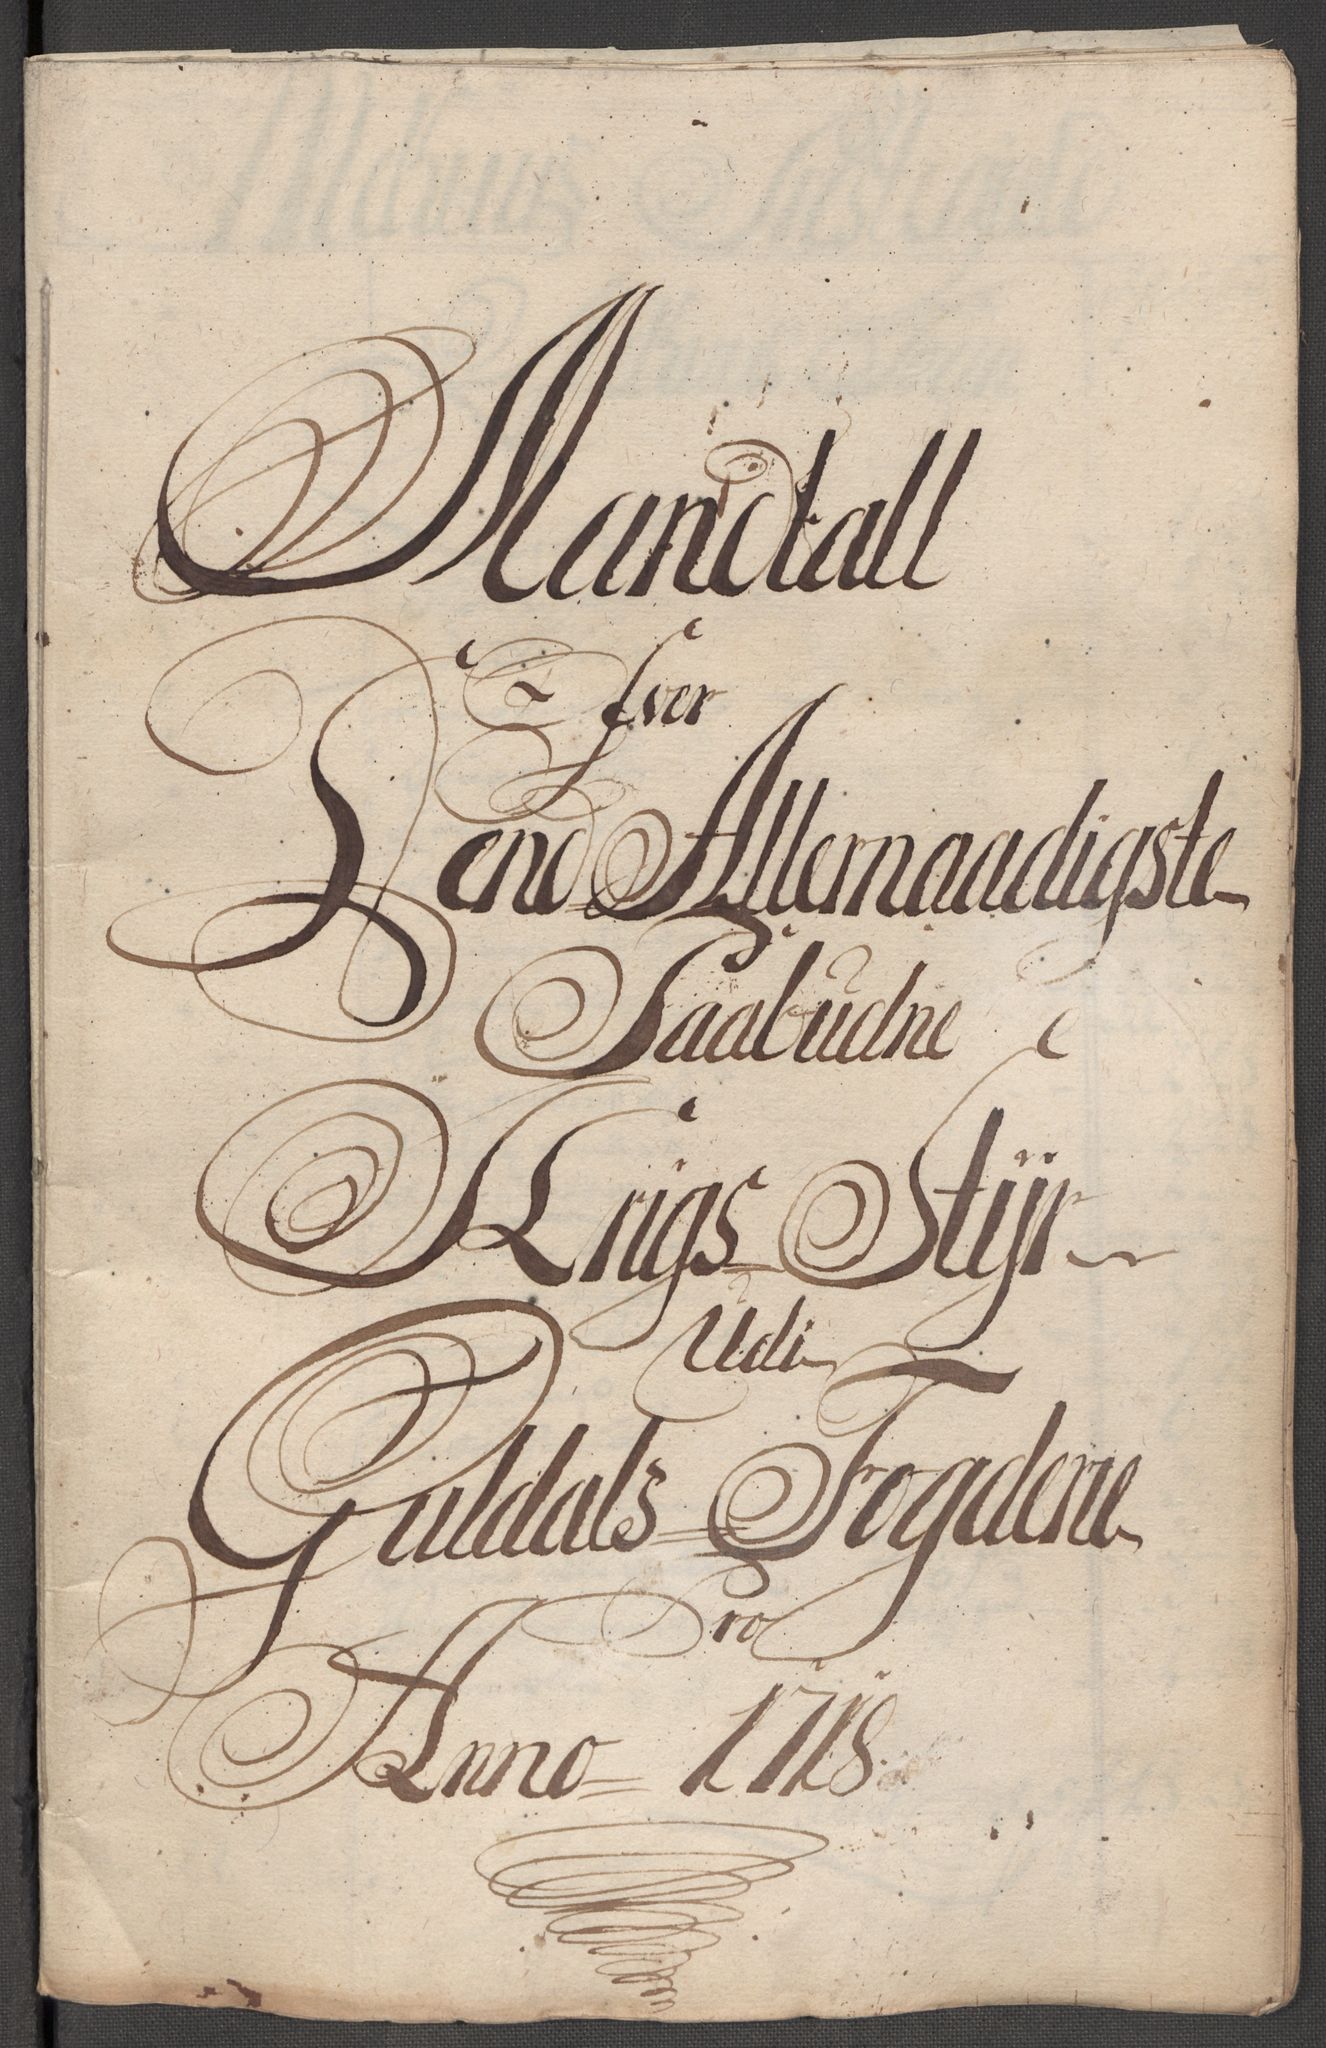 Mandtall
Ofver
Dend Allernaadigste
Paabudne
Krigs Stÿr
Udi
Guldals Fogderie
Pro
Anno 1718